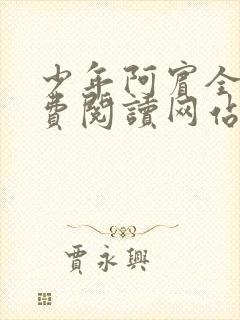 少年阿賓全
費閱讀网佔
賈永興